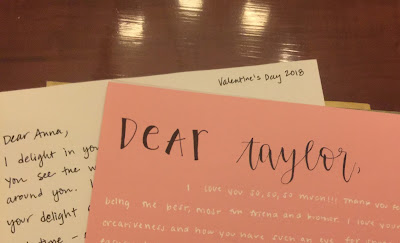 Valentine's Day 2018
Dear Anna,
I delight in you
You see the w
around you. I
your delight
time –
Dear Taylor,
I love you so, so, so much!!! Thank you
being the best, most friend and
creativeness and how you have such an eye for